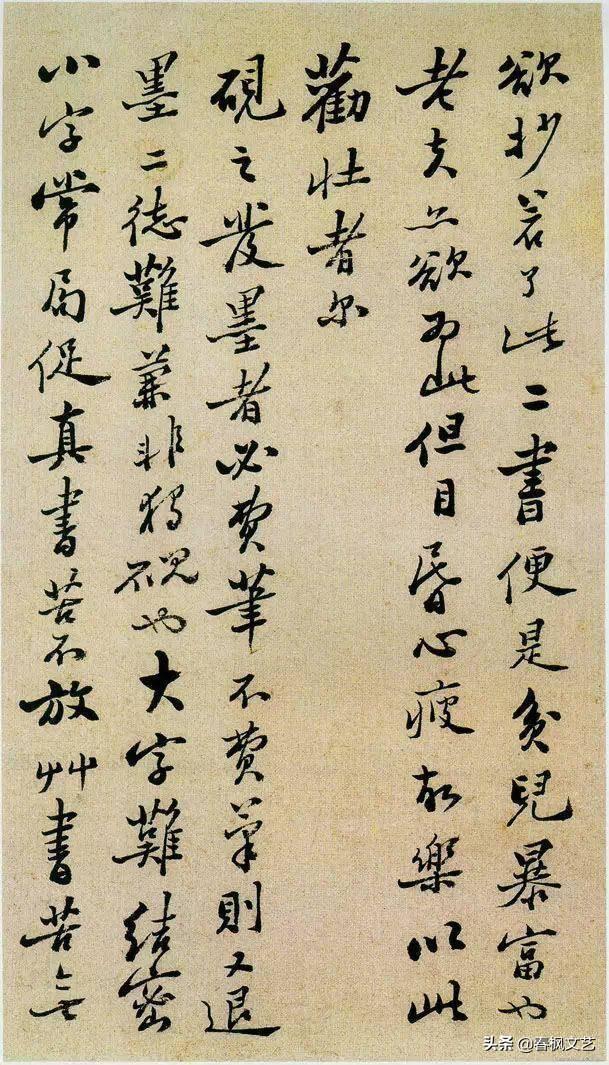 欲抄若了此二書便是貧兒暴富也
老夫亦欲為此但目昏心疲故樂以此
勸壯者尔
硯之發墨者必費筆不費筆則又退
墨二德難兼非獨硯也大字難結密
小字常局促真書苦不放艸書苦無
头条 @春枫文艺